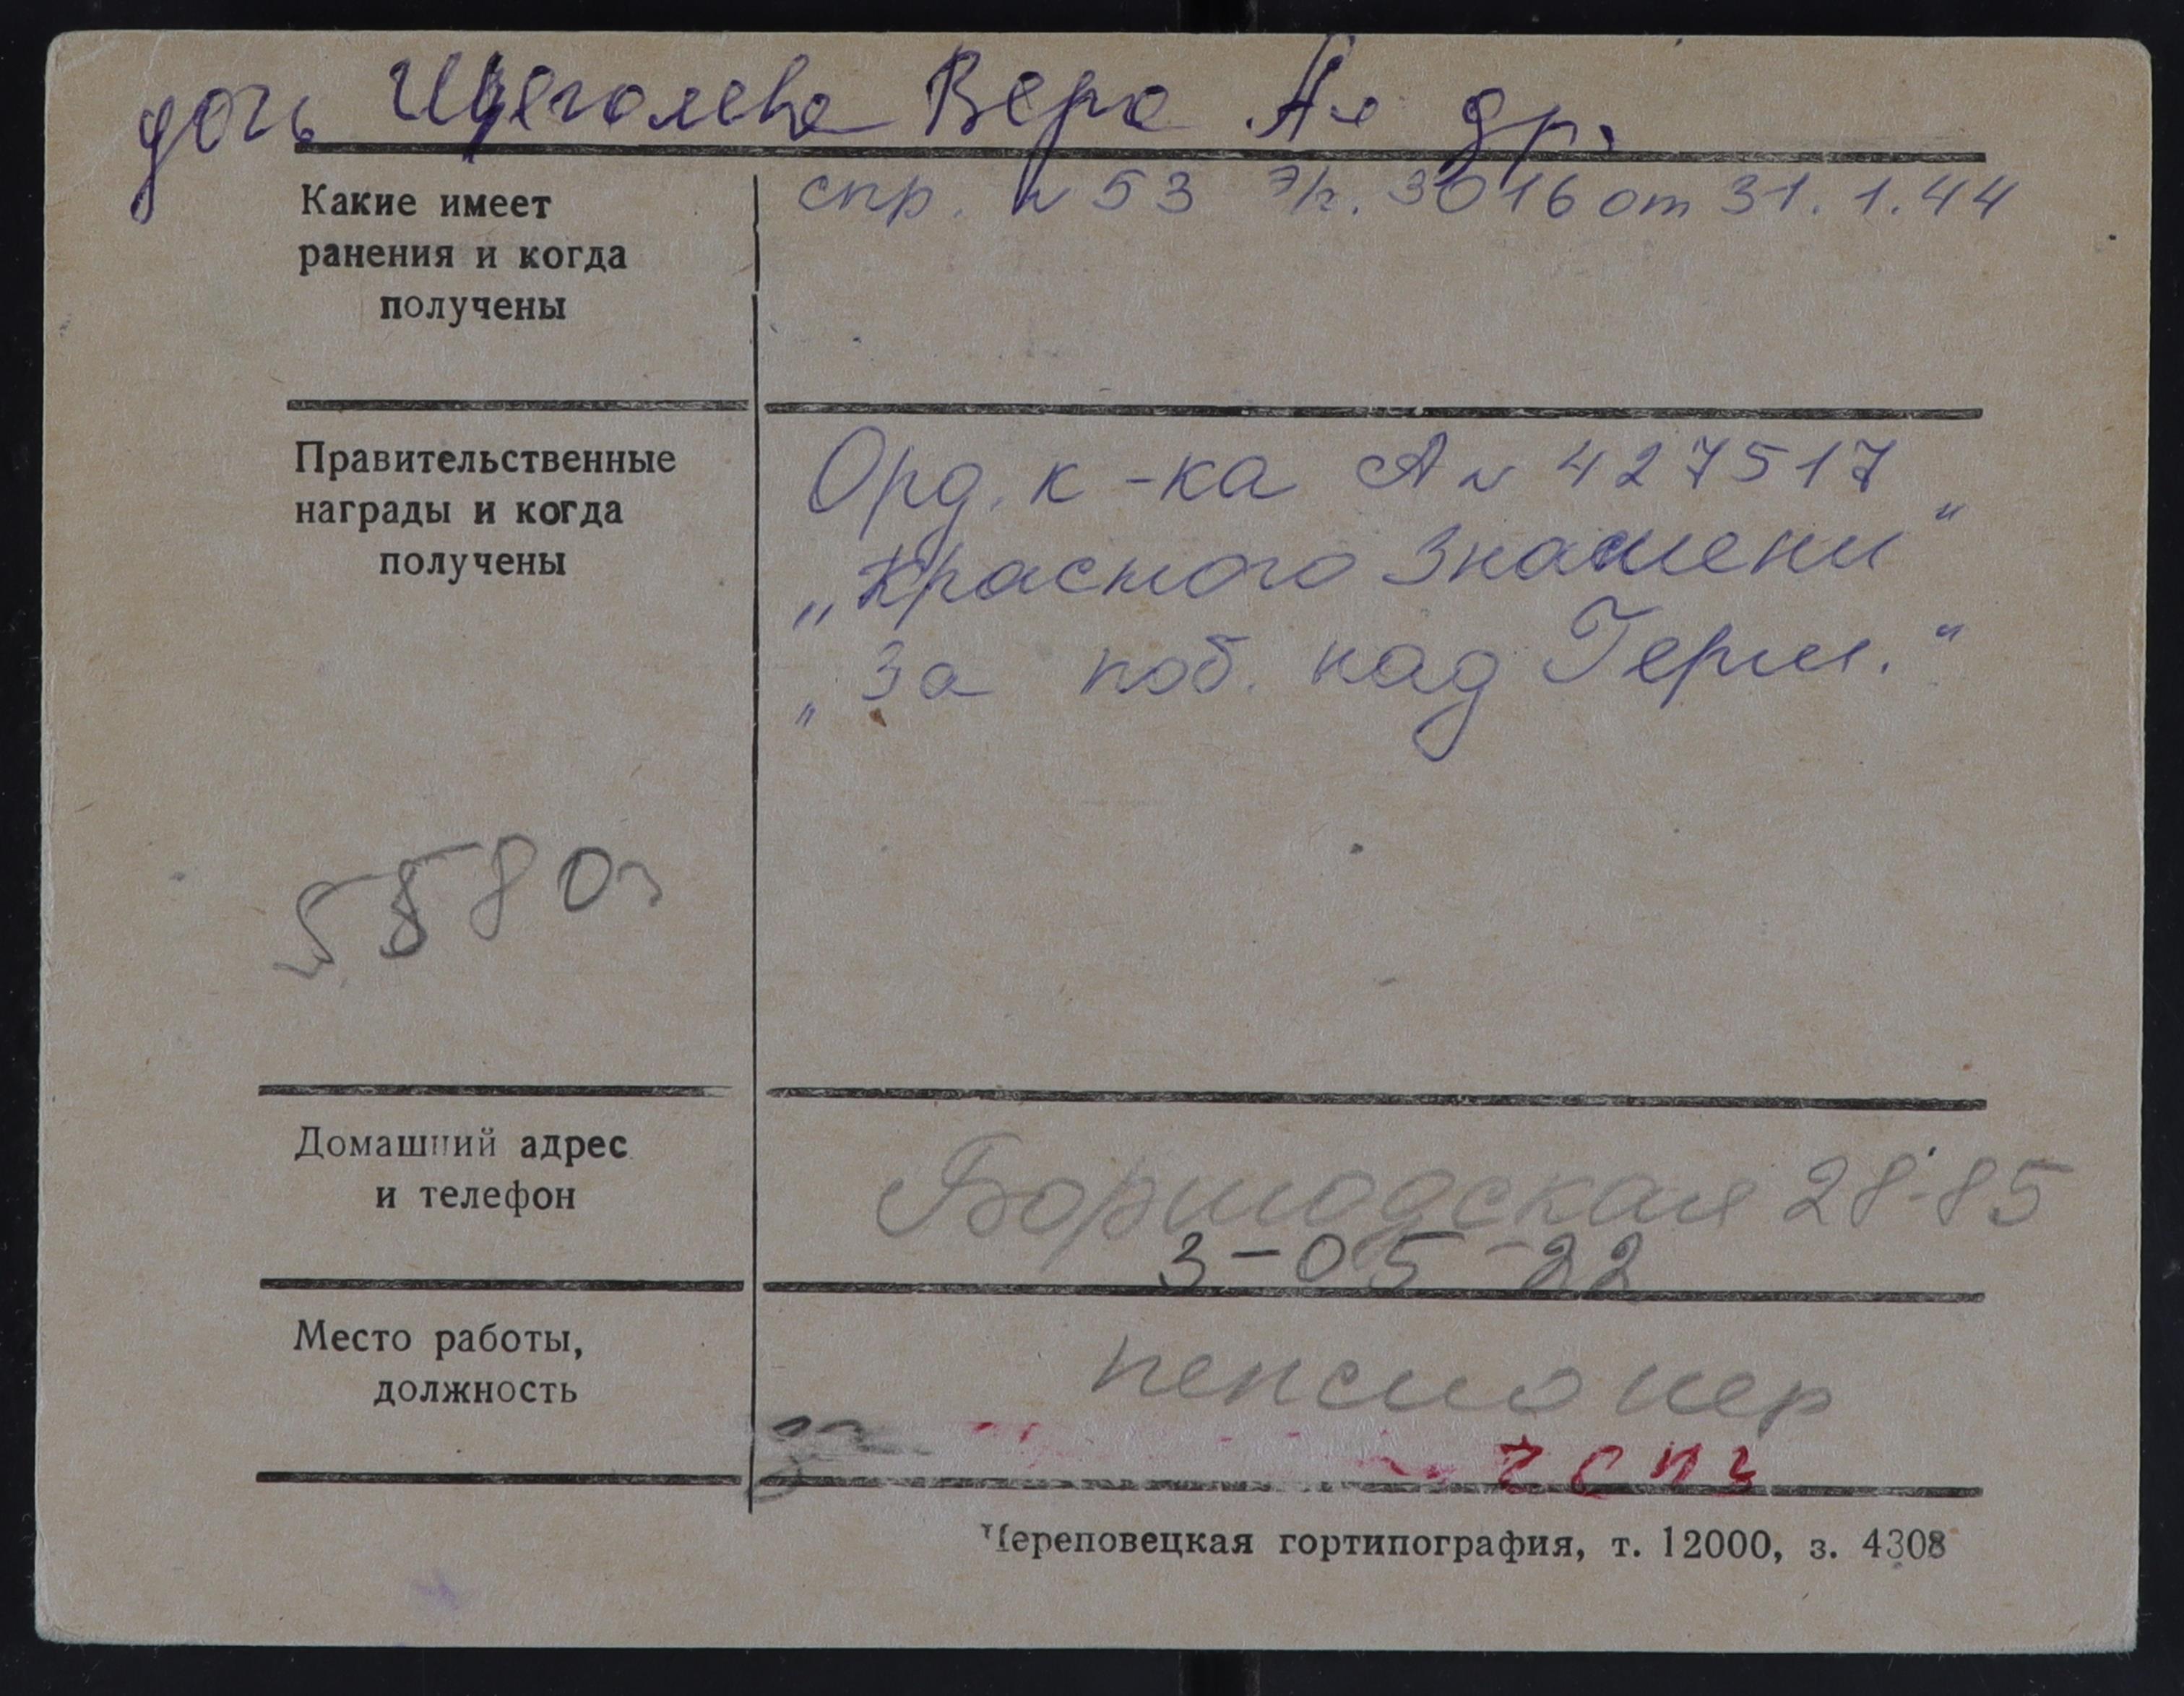 дочь Щеголева Вера Ал др.
Какие имеет
ранения и когда
получены
спр. № 53 Э/г. 3016 от 31.1.44
Правительственные
награды и когда
получены
Орд. к-ка А № 427517
„Красного Знамени“
„За поб. над Герм.“
5580
Домашний адрес
и телефон
Боршодская 28-85
3-05-22
Место работы,
должность
пенсионер
Череповецкая гортипография, т. 12000, з. 4308